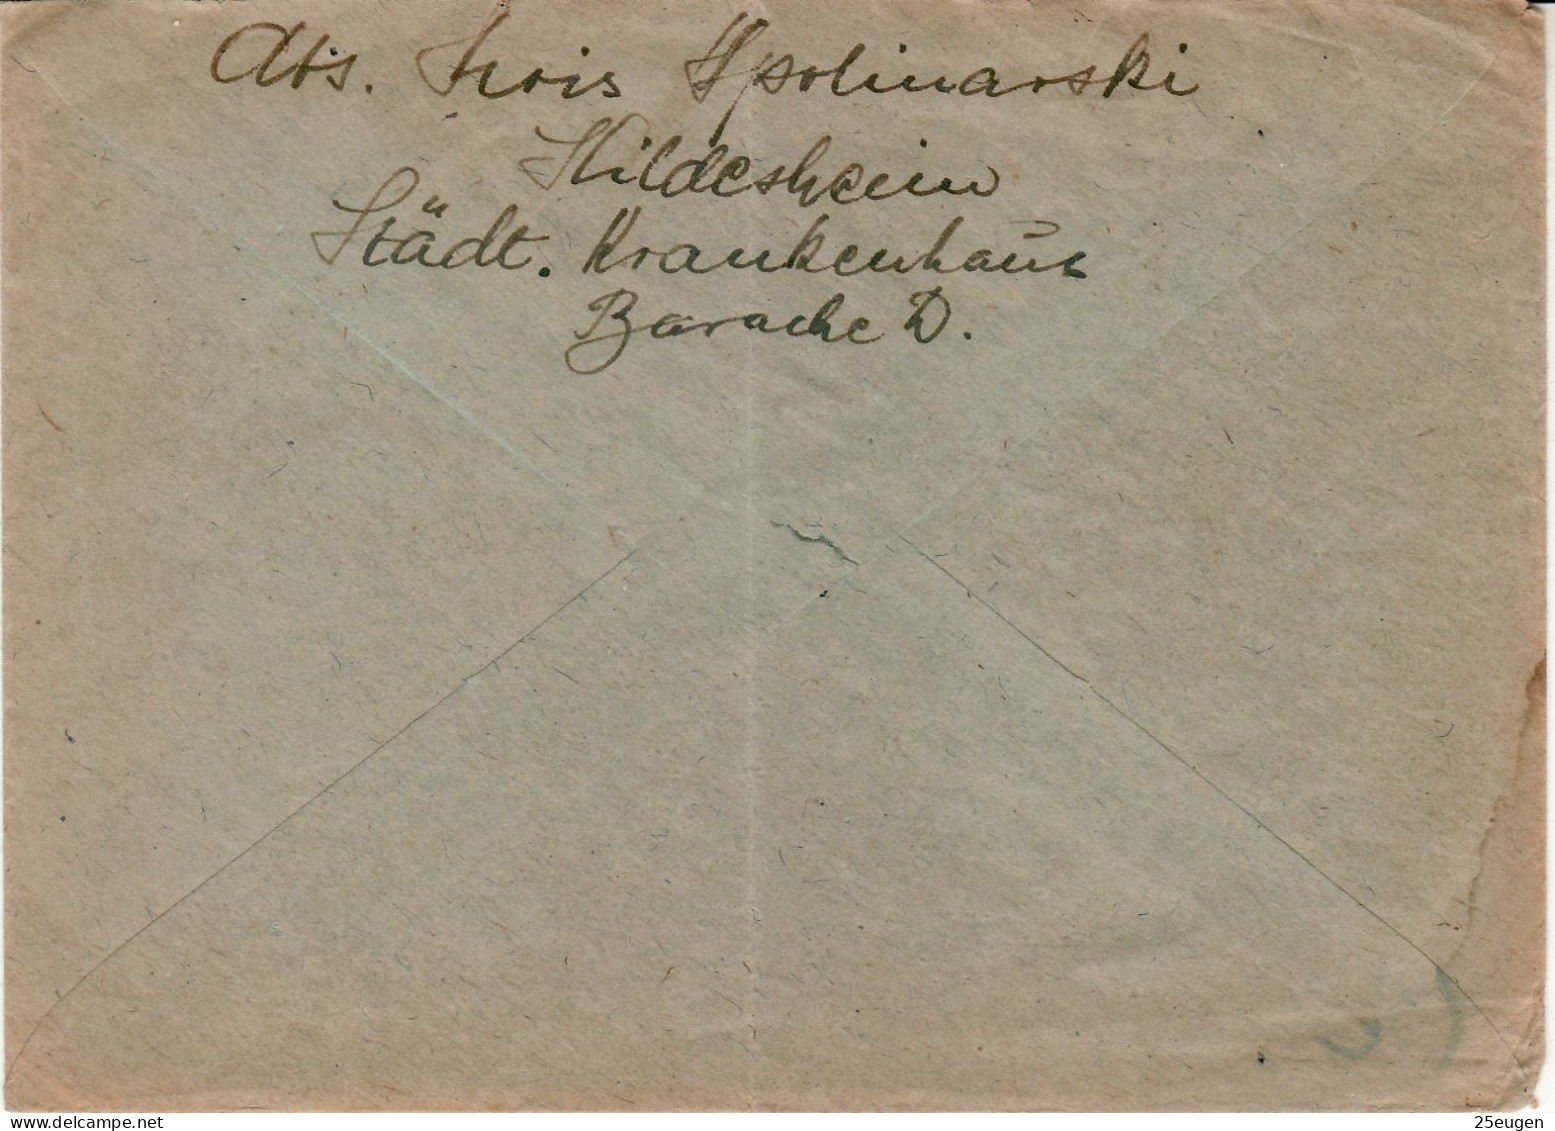 Abs. Apolinarski
Hildesheim
Städt. Krankenhaus
Baracke D.
www.delcampe.net
25eugen